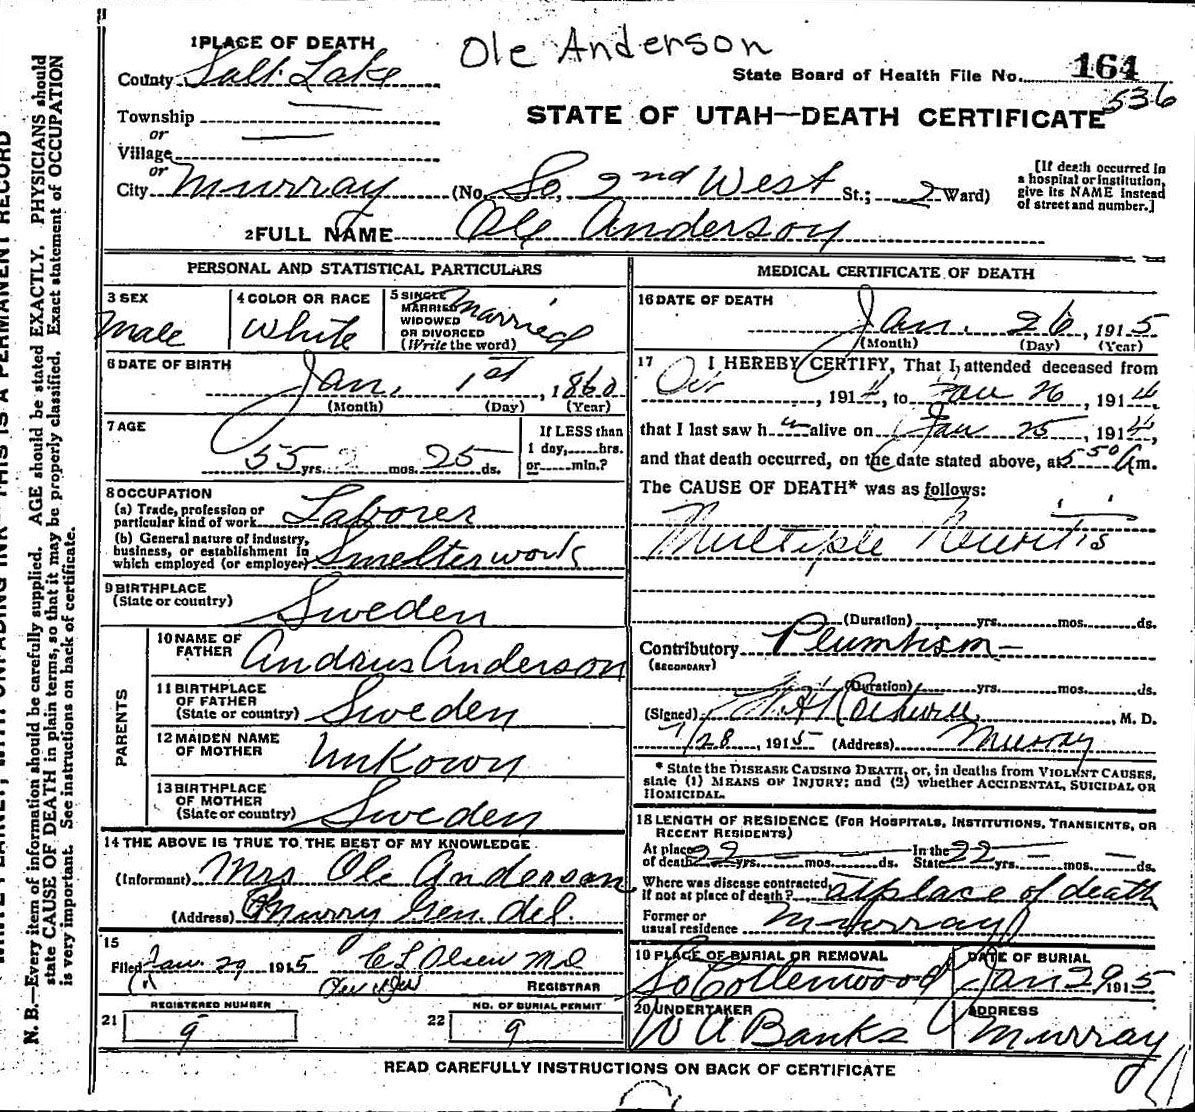 Ole Anderson
1 PLACE OF DEATH
County Salt Lake
State Board of Health File No. 164
536
STATE OF UTAH—DEATH CERTIFICATE
Township
or
Village
or
City Murray (No. So. 2nd West St.; 2 Ward)
[If death occurred in
a hospital or institution,
give its NAME instead
of street and number.]
2 FULL NAME Ole Anderson
PERSONAL AND STATISTICAL PARTICULARS
3 SEX
Male
4 COLOR OR RACE
White
5 SINGLE
MARRIED
WIDOWED
OR DIVORCED
(Write the word)
Married
6 DATE OF BIRTH
Jan. 1st, 1860
(Month) (Day) (Year)
7 AGE
55 yrs. mos. 25 ds.
If LESS than
1 day, hrs.
or min.?
8 OCCUPATION
(a) Trade, profession or
particular kind of work Laborer
(b) General nature of industry,
business, or establishment in
which employed (or employer) Smelter work
9 BIRTHPLACE
(State or country) Sweden
PARENTS
10 NAME OF
FATHER Andrus Anderson
11 BIRTHPLACE
OF FATHER
(State or country) Sweden
12 MAIDEN NAME
OF MOTHER Unkown
13 BIRTHPLACE
OF MOTHER
(State or country) Sweden
14 THE ABOVE IS TRUE TO THE BEST OF MY KNOWLEDGE
(Informant) Mrs Ole Anderson
(Address) Murry Gen. Del.
15
Filed Jan. 29 1915 C L Olsen M D
REGISTRAR
REGISTERED NUMBER
21 9
NO. OF BURIAL PERMIT
22 9
MEDICAL CERTIFICATE OF DEATH
16 DATE OF DEATH
Jan. 26, 1915
(Month) (Day) (Year)
17 I HEREBY CERTIFY, That I attended deceased from
, 1914, to Jan 26, 1914,
that I last saw h alive on Jan 25, 1914,
and that death occurred, on the date stated above, at 5 50 A m.
The CAUSE OF DEATH* was as follows:
Multiple Neuritis
(Duration) yrs. mos. ds.
Contributory Plumbism
(SECONDARY)
(Duration) yrs. mos. ds.
(Signed) , M. D.
1/28, 1915 (Address) Murray
* State the DISEASE CAUSING DEATH, or, in deaths from VIOLENT CAUSES,
state (1) MEANS OF INJURY; and (2) whether ACCIDENTAL, SUICIDAL OR
HOMICIDAL.
18 LENGTH OF RESIDENCE (FOR HOSPITALS, INSTITUTIONS, TRANSIENTS, OR
RECENT RESIDENTS)
At place
of death 22 yrs. mos. ds. In the
State 22 yrs. mos. ds.
Where was disease contracted,
if not at place of death? at place of death
Former or
usual residence Murray
19 PLACE OF BURIAL OR REMOVAL
So Cottenwood
DATE OF BURIAL
Jan 29 1915
20 UNDERTAKER
W A Banks
ADDRESS
Murray
READ CAREFULLY INSTRUCTIONS ON BACK OF CERTIFICATE
N. B.—Every item of information should be carefully supplied. AGE should be stated EXACTLY. PHYSICIANS should
state CAUSE OF DEATH in plain terms, so that it may be properly classified. Exact statement of OCCUPATION
is very important. See instructions on back of certificate.